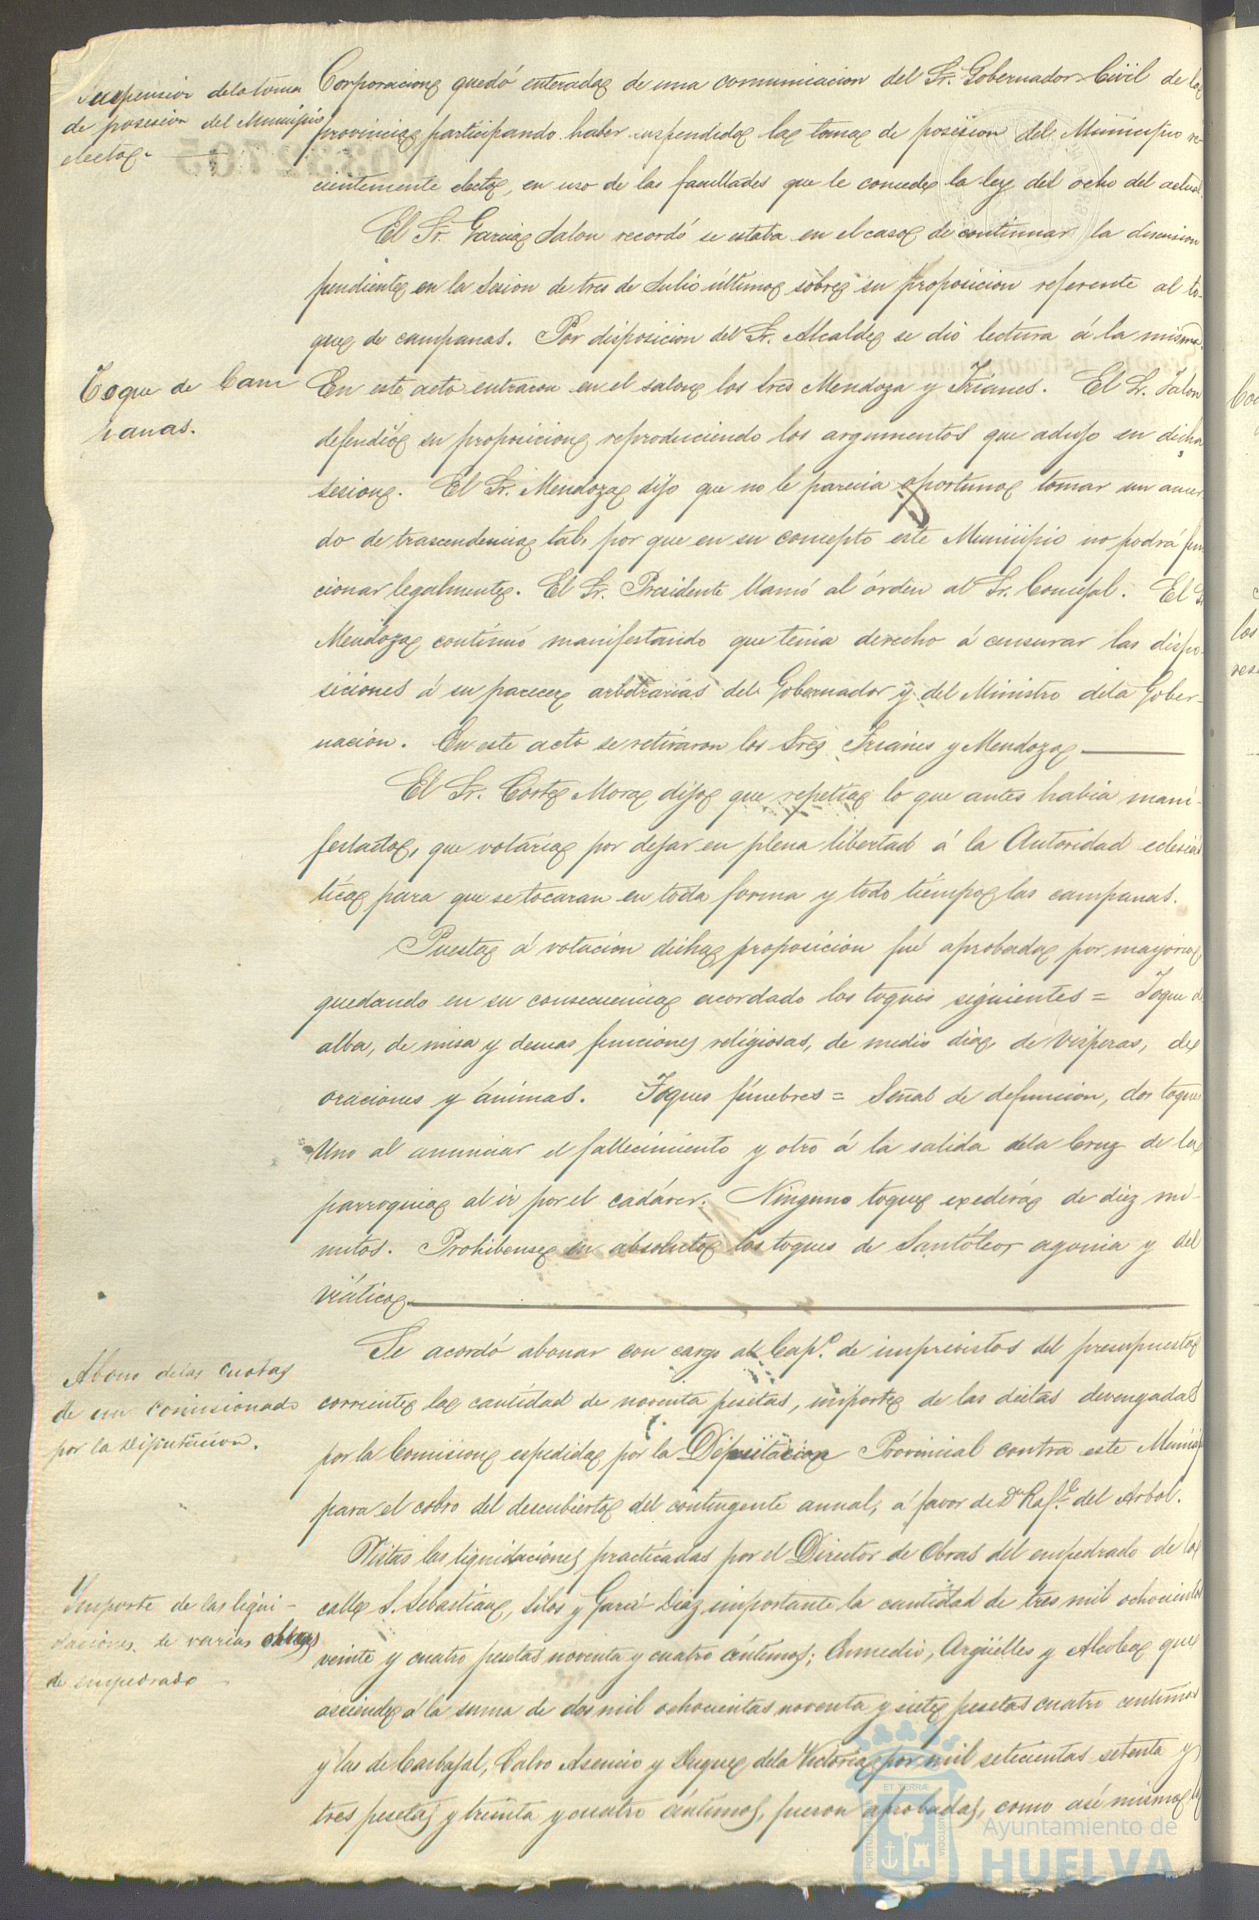 Suspension dela toma
de posesion del Municipio
electo.
Corporacion quedó enterada de una comunicacion del Sr. Gobernador Civil de la
provincia participando haber suspendido la toma de posesion del Municipio re-
cientemente electo, en uso de las facultades que le concede la ley del ocho del actual.
El Sr. Garcia Jalon recordó se estaba en el caso de continuar la discusion
pendiente en la Sesion de tres de Julio último sobre su proposicion referente al to-
que de campanas. Por disposicion del Sr. Alcalde se dió lectura á la misma.
Toque de Cam
panas.
En este acto entraron en el salon los Sres Mendoza y Trianes. El Sr. Jalon
defendió su proposicion reproduciendo los argumentos que adujo en dicha
sesion. El Sr. Mendoza dijo que no le parecia oportuno tomar un acuer-
do de trascendencia tal, por que en su concepto este Municipio no podrá fun
cionar legalmente. El Sr. Presidente llamó al órden al Sr. Concejal. El Sr
Mendoza continuó manifestando que tenia derecho á censurar las dispo-
siciones á su parecer arbitrarias del Gobernador y del Ministro dela Gober-
nacion. En este acto se retiraron los Sres Trianes y Mendoza
El Sr. Corte Mora dijo que repetia lo que antes habia mani-
festado, que votaria por dejar en plena libertad á la Autoridad eclesiás
tica para que se tocaran en toda forma y todo tiempo las campanas.
Puesta á votacion dicha proposicion fué aprobada por mayoria
quedando en su consecuencia acordado los toques siguientes = Toque de
alba, de misa y demas funciones religiosas, de medio dia, de Visperas, de
oraciones y ánimas. Toques fúnebres = Señal de defuncion, dos toques
Uno al anunciar el fallecimiento y otro á la salida dela Cruz de la
parroquia al ir por el cadáver. Ninguno toque exederá de diez mi-
nutos. Prohibense en absoluto los toques de Santóleo, agonia y del
viático.
Abono delas cuotas
de un comisionado
por la Diputacion.
Se acordó abonar con cargo al Cap.º de imprevistos del presupuesto
corriente la cantidad de noventa pesetas, importe de las dietas devengadas
por la Comision espedida por la Diputacion Provincial contra este Municip
para el cobro del descubierto del contingente annal, á favor de Dn Raf.l del Arbol.
Importe de las liqui-
daciones de varias obras
de empedrado
Vistas las liquidaciones practicadas por el Director de Obras del empedrado de las
calles S. Sebastian, Silos y Garci-Diaz importante la cantidad de tres mil ochocientas
veinte y cuatro pesetas noventa y cuatro céntimos; Enmedio, Argüelles y Alcolea que
asciende á la suma de dos mil ochocientas noventa y siete pesetas cuatro centimos
y las de Carbajal, Calvo Asencio y Duque dela Victoria por mil setecientas setenta y
tres pesetas y treinta y cuatro céntimos, fueron aprobadas, como asi mismo
Ayuntamiento de
HUELVA